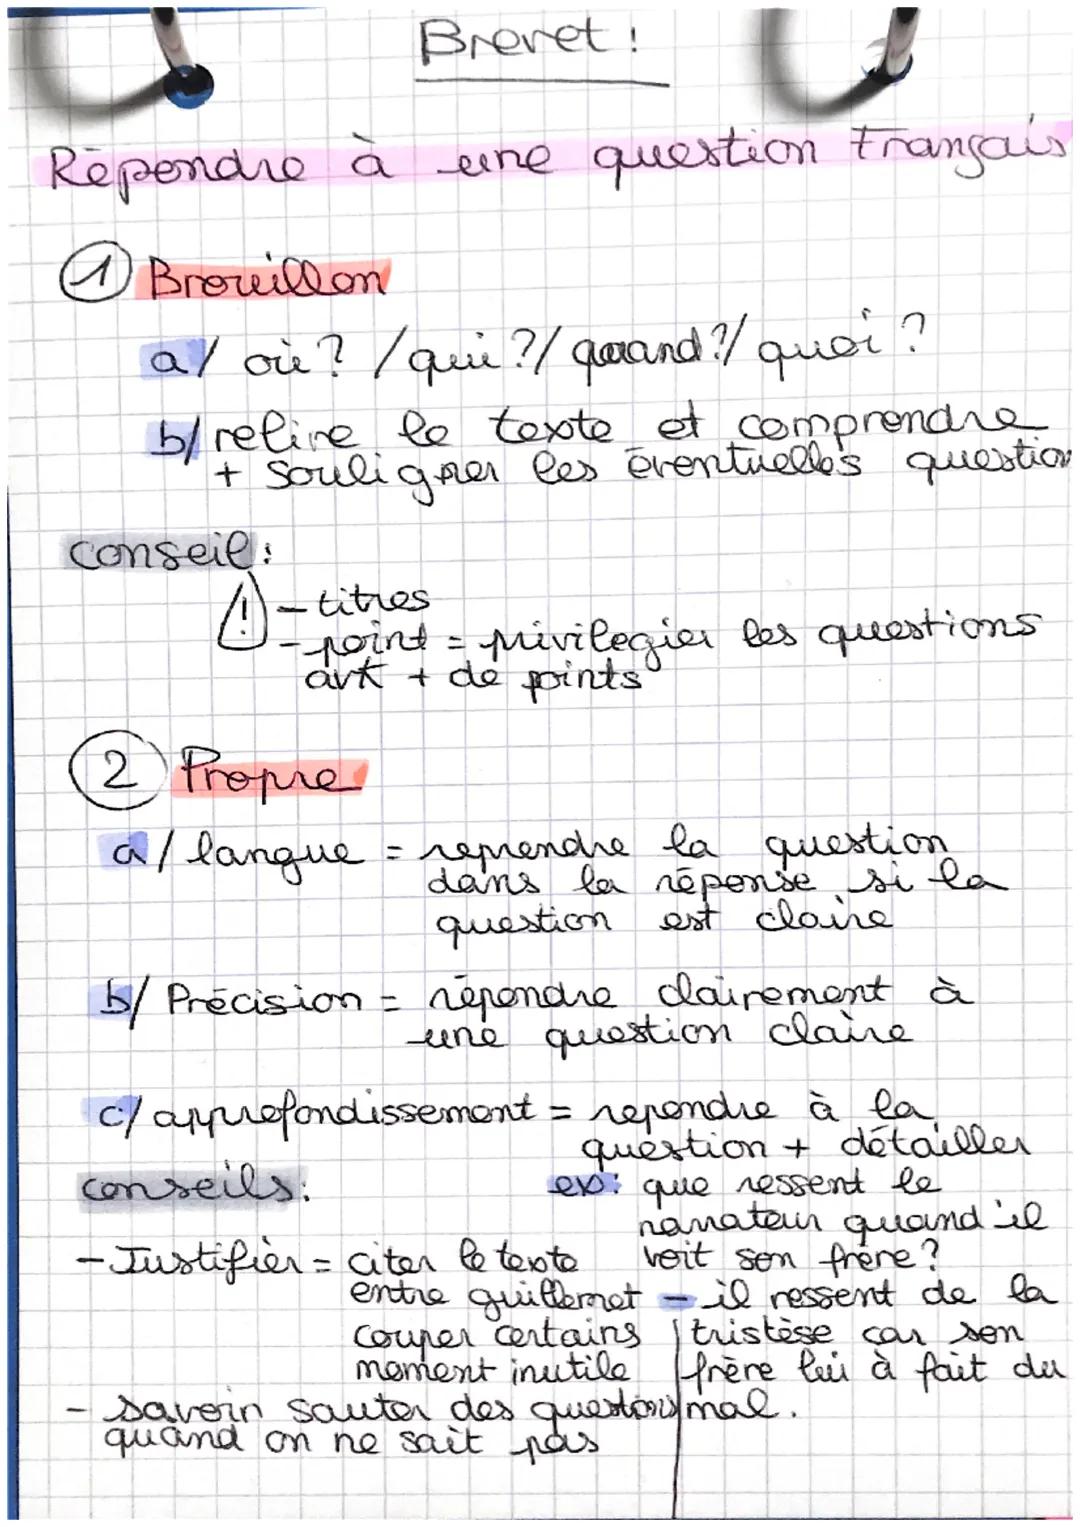 Brevet :
Répondre à une question français
1 Brouillon
a/ où ? / qui ?/ quand ?/ quoi ?
b/ relire le texte et comprendre
+ souligner les éventuelles question
conseil :
! - titres
- point = privilegier les questions
avt + de points
2 Propre
a/ langue = reprendre la question
dans la réponse si la
question est claire
b/ Précision = répondre clairement à
une question claire
c/ approfondissement = repondre à la
question + détailler
conseils :
ex : que ressent le
narrateur quand il
voit son frère ?
- il ressent de la
tristèse car son
frère lui à fait du
mal.
- Justifier = citer le texte
entre guillemet
couper certains
moment inutile
- savoir sauter des questions
quand on ne sait pas